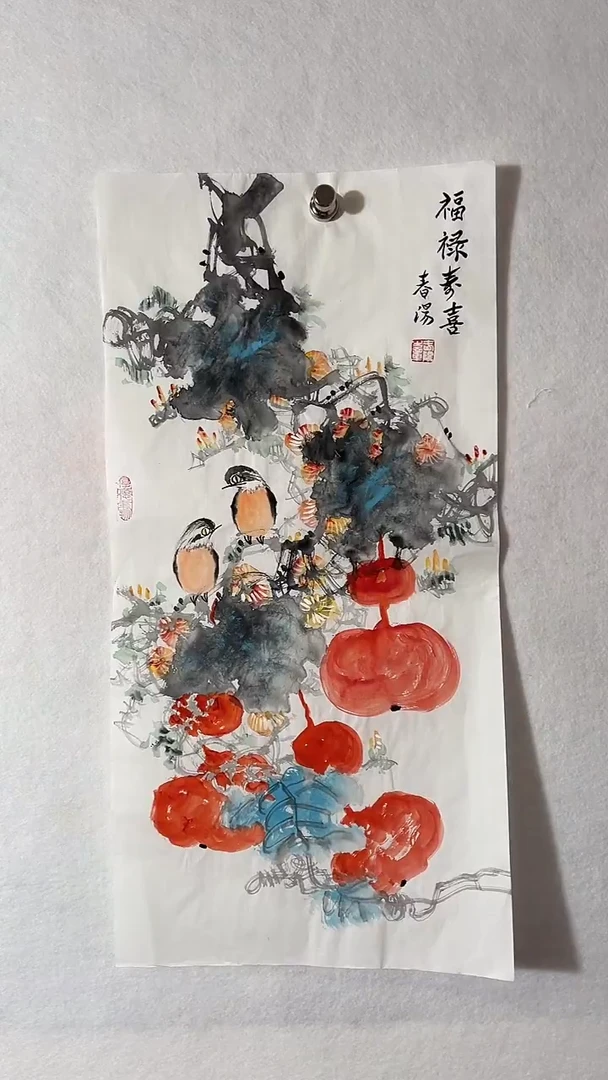 福禄寿喜
春湯